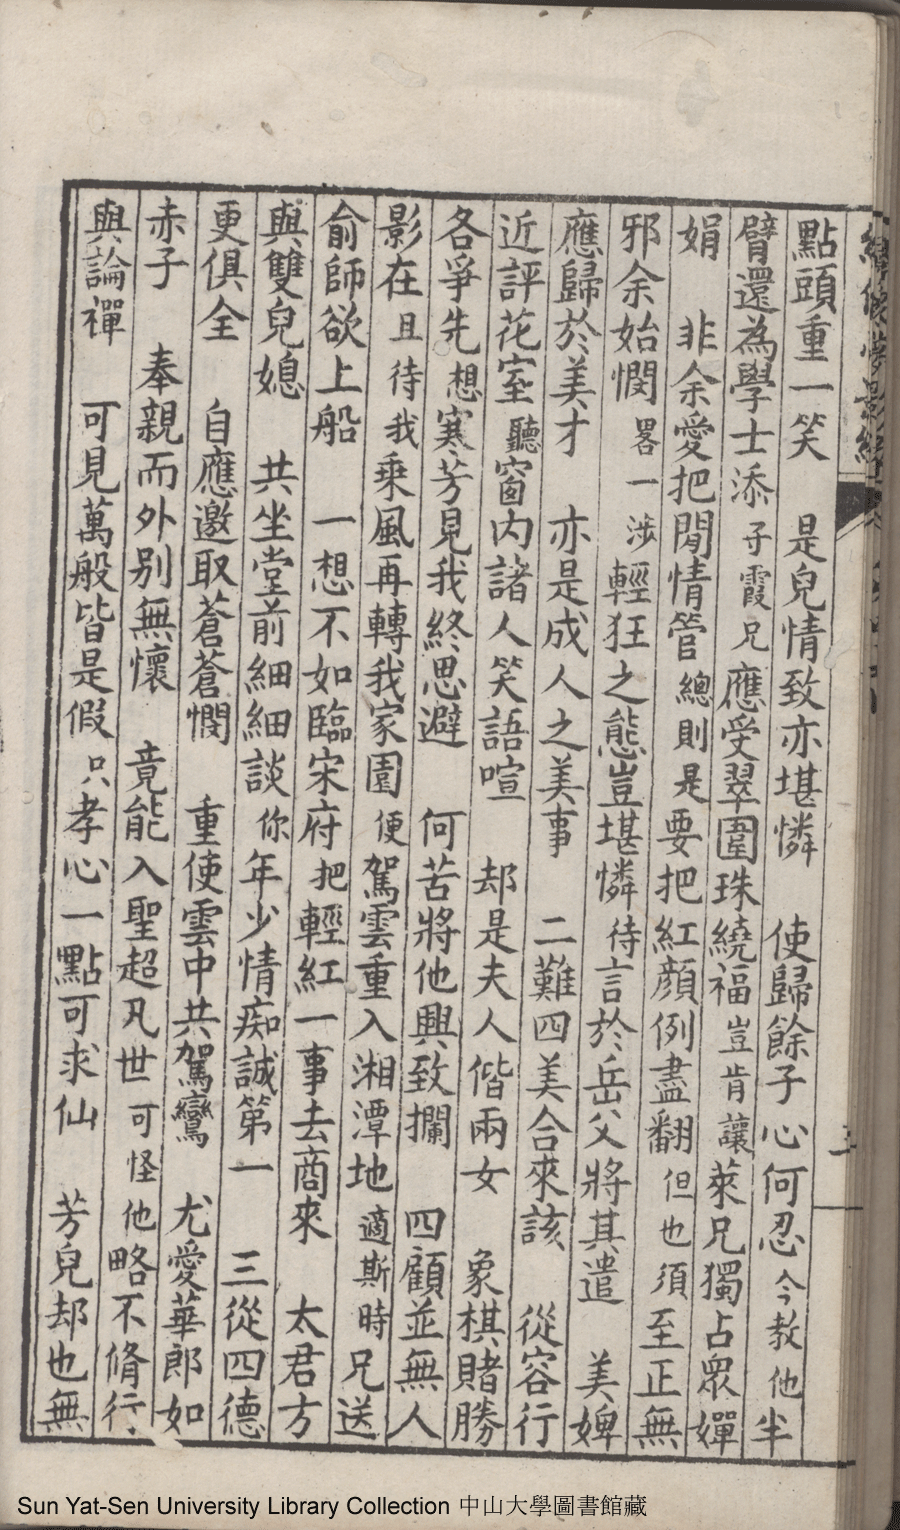 點頭重一笑　是兒情致亦堪憐　使歸餘子心何忍今教他半
臂還為學士添子霞兄應受翠圍珠繞福豈肯讓萊兄獨占眾嬋
娟　非余愛把閒情管總則是要把紅顔例盡翻但也須至正無
邪余始憫畧一涉輕狂之態豈堪憐待言於岳父將其遣　美婢
應歸於美才　亦是成人之美事　二難四美合來該　從容行
近評花室聽窗内諸人笑語喧　却是夫人偕兩女　象棋賭勝
各爭先想寒芳見我終思避　何苦將他興致攔　四顧並無人
影在且待我乘風再轉我家園便駕雲重入湘潭地適斯時兄送
俞師欲上船　一想不如臨宋府把輕紅一事去商來　太君方
與雙兒媳　共坐堂前細細談你年少情痴誠第一　三從四德
更俱全　自應邀取蒼蒼憫　重使雲中共駕鸞　尤愛華郎如
赤子　奉親而外別無懷　竟能入聖超凡世可怪他略不脩行
與論禪　可見萬般皆是假只孝心一點可求仙　芳兒却也無
Sun Yat-Sen University Library Collection 中山大學圖書館藏